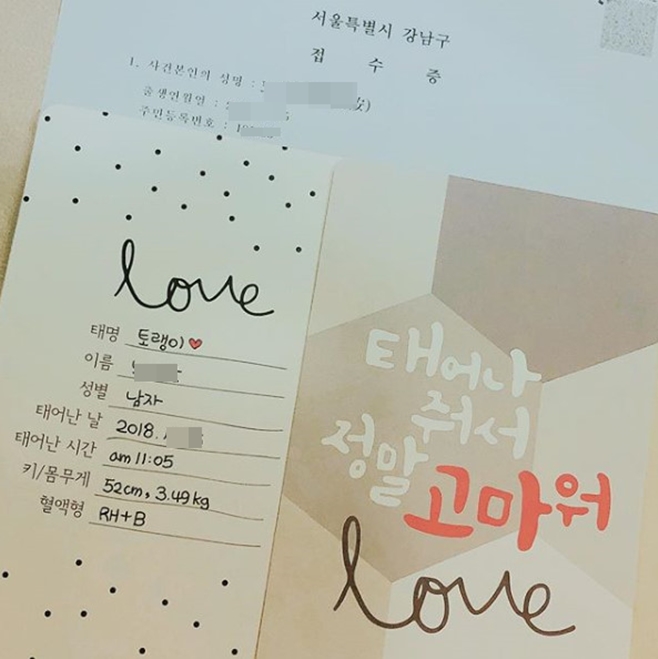 서울특별시 강남구
접 수 증
1. 사건본인의 성명 :
출생연월일 :
주민등록번호 :
love
태명 토랭이♥
이름
성별 남자
태어난 날 2018.
태어난 시간 am 11:05
키/몸무게 52cm, 3.49kg
혈액형 RH+B
태어나
줘서
정말 고마워
love